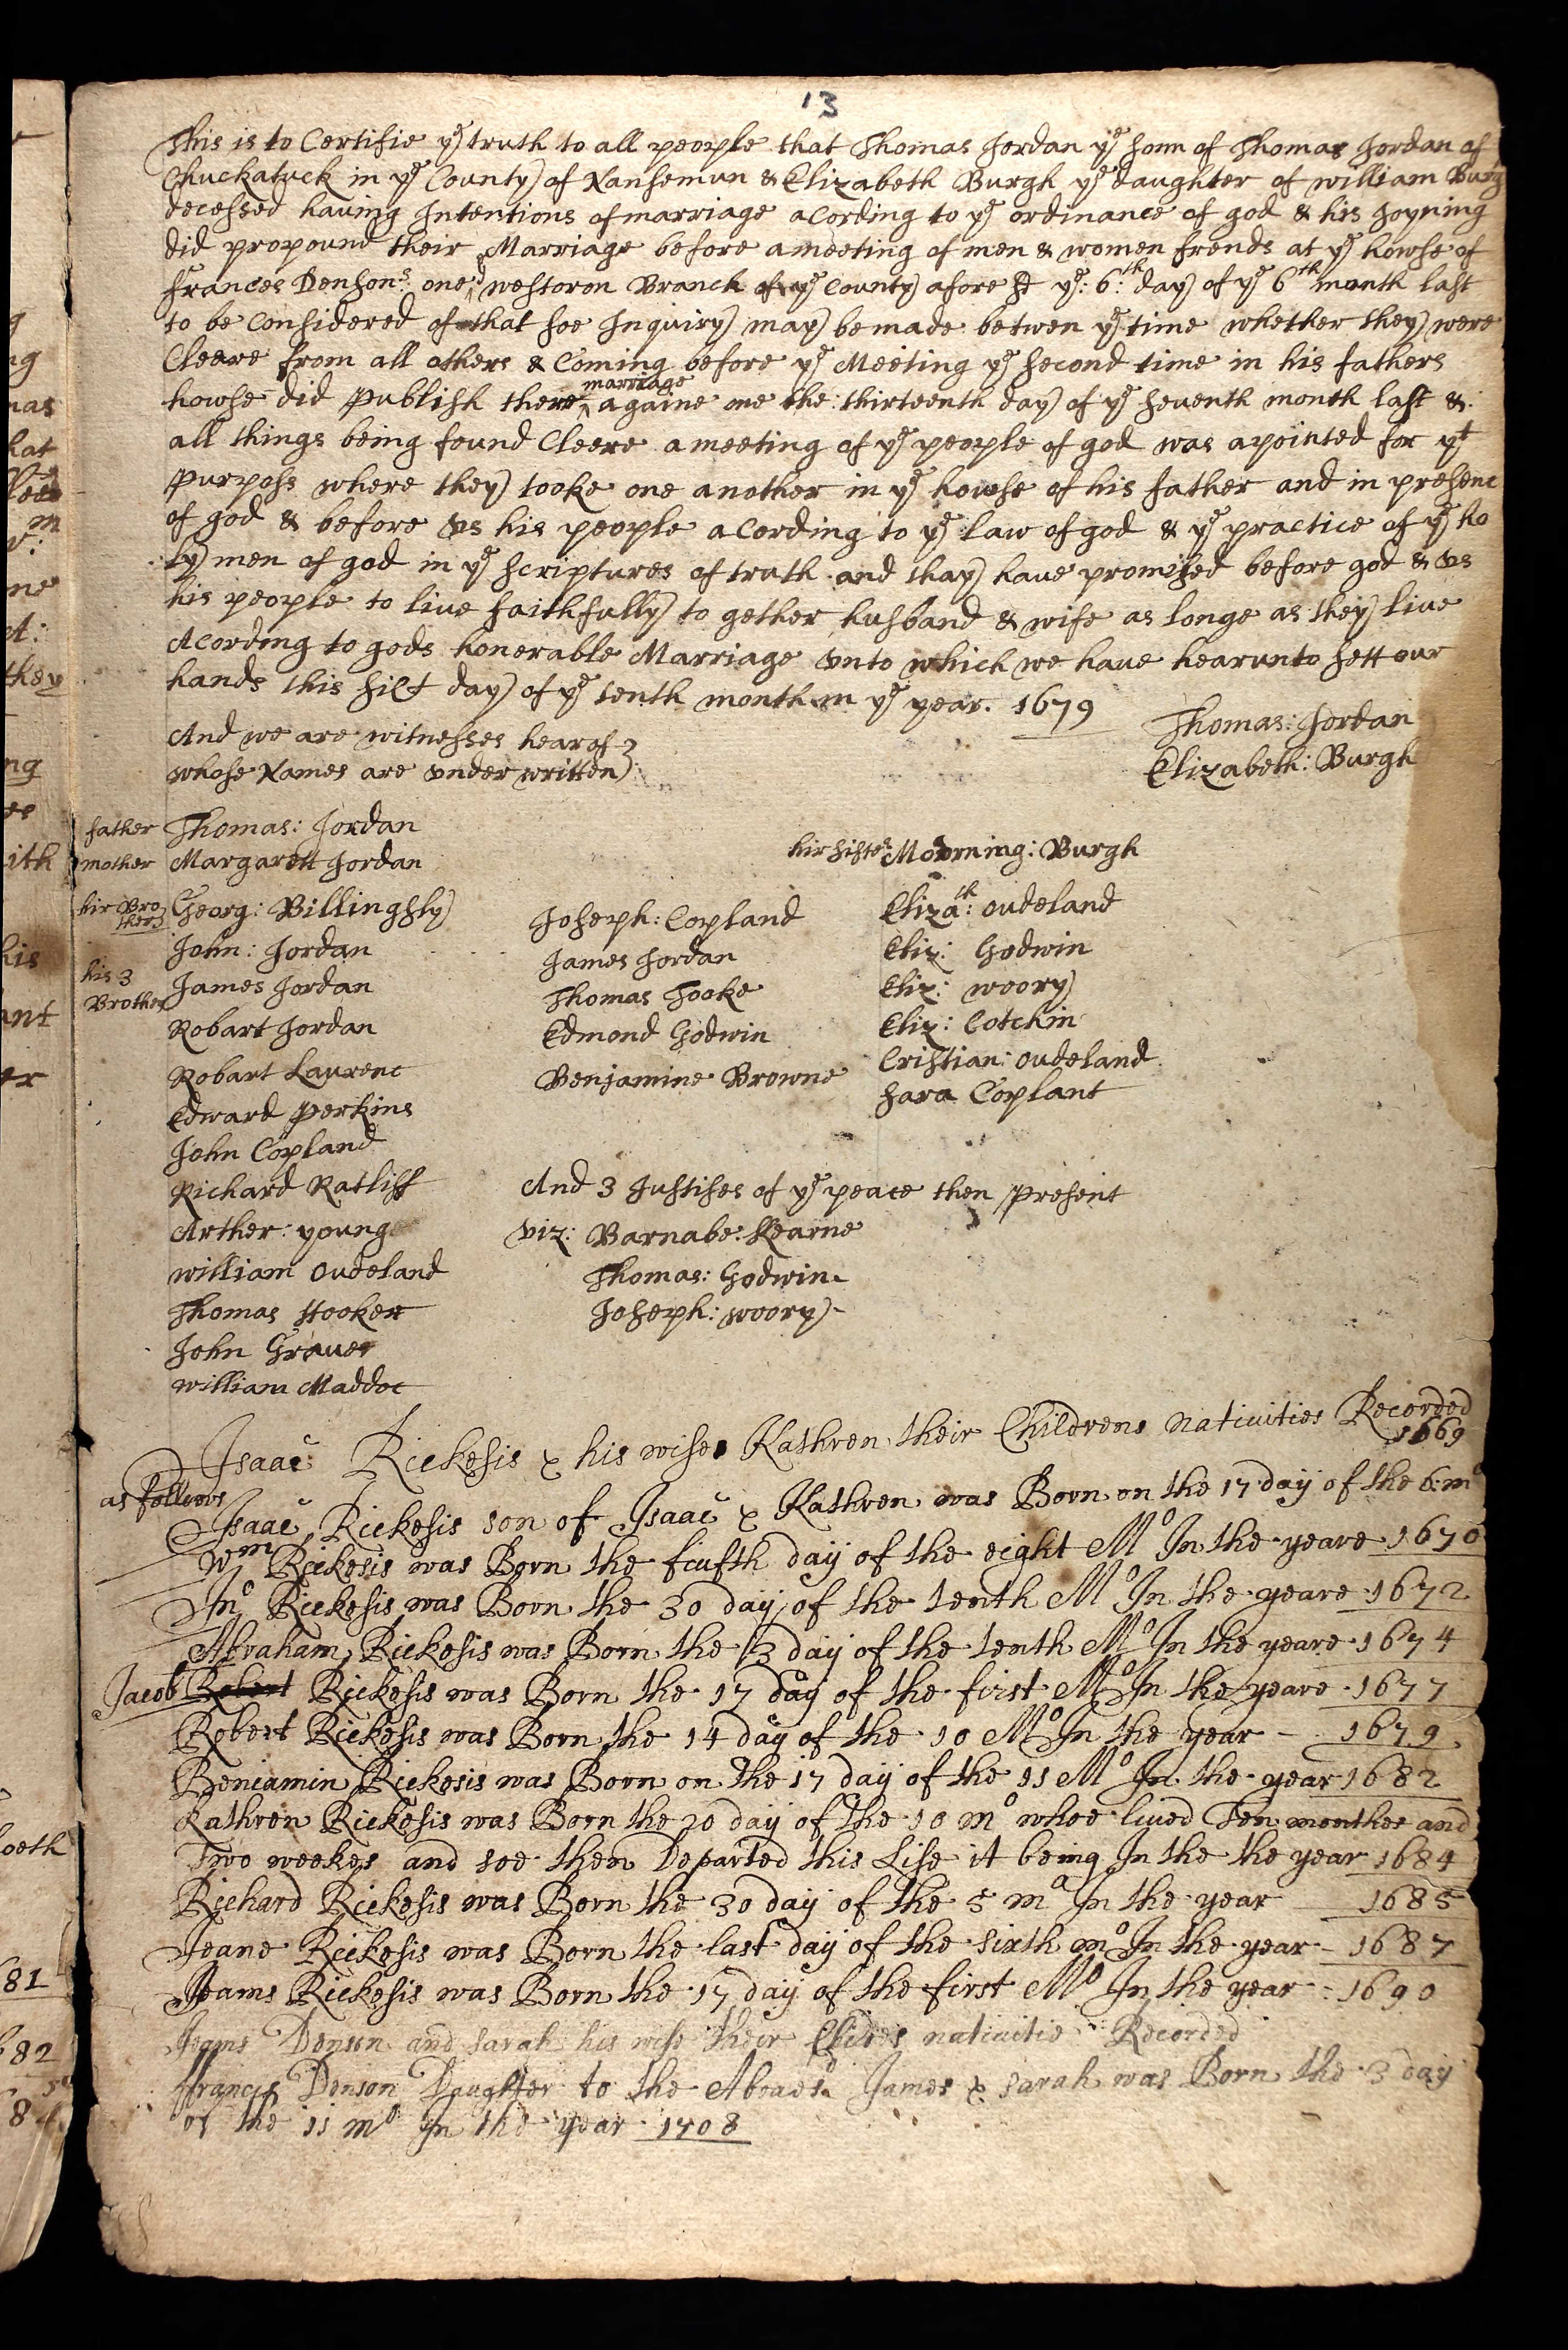 13
This is to Certifie ye truth to all people that Thomas Jordan ye sonn of Thomas Jordan of
Chuckatuck in ye County of Nansemun & Elizabeth Burgh ye daughter of william Burg
decessed hauing Intentions of marriage acording to ye ordinance of god & his Joyning
did propound their Marriage before a meeting of men & women frends at ye howse of
Frances Densons one ye westoron Branch of ye County afore sd ye: 6:th day of ye 6th month last
to be Considered of that soe Inquiry may be made betwen ye time whether they were
Cleare from all others & Coming before ye Meeting ye second time in his fathers
marriage
howse did Publish there againe one the thirteenth day of ye seuenth month last &
all things being found Cleere a meeting of ye people of god was apointed for yt
Purposs where they tooke one another in ye howse of his father and in presenc
of god & before vs his people acording to ye law of god & ye practice of ye ho
ly men of god in ye scriptures of truth and thay haue promised before god & vs
his people to liue faithfully to gether husband & wife as longe as they liue
Acording to gods honerable Marriage vnto which we haue hearunto sett our
hands this day of ye tenth month in ye year. 1679
Thomas: Jordan
And we are witnesses hearof
Elizabeth: Burgh
whose Names are vnder written
father Thomas: Jordan
mother Margarett Jordan
hir sister Mourning: Burgh
hir Bro
ther
Georg: Billingsly
Joseph: Copland
Elizath: oudeland
John: Jordan
James Jordan
Eliz: Godwin
his 3
Brother
James Jordan
Thomas Tooke
Eliz: woory
Robart Jordan
Edmond Godwin
Eliz: Cotchin
Robart Laurenc
Benjamine Browne
Cristian: oudeland
Edward Perkins
sara Coplant
John Copland
Richard Ratliff
And 3 Justises of ye peace then Present
Arther: young
viz: Barnabe: Kearne
william oudeland
Thomas: Godwin
Thomas Hooker
Joseph: woory
John Graues
william Maddoc
Isaac Rickesis & his wife Kathren their Childrens natiuities Recorded
as follows
1669
Isaac Rickesis son of Isaac & Kathren was Born on the 17 day of the 6: mo
Wm Rickesis was Born the fiufth day of the eight Mo In the yeare 1670
Jno Rickesis was Born the 30 day of the tenth Mo In the yeare 1672
Abraham Rickesis was Born the 13 day of the tenth Mo In the yeare 1674
Jacob Robert Rickesis was Born the 17 day of the first Mo In the yeare 1677
Robert Rickesis was Born the 14 day of the 10 Mo In the year 1679
Beniamin Rickesis was Born on the 17 day of the 11 Mo In the year 1682
Kathren Rickesis was Born the 20 day of the 10 mo whoe liued Ten monthes and
Two weekes and soe then Departed this Life it being In the the year 1684
Richard Rickesis was Born the 30 day of the 5 mo In the year 1685
Jeane Rickesis was Born the last day of the sixth mo In the year 1687
Jeams Rickesis was Born the 17 day of the first Mo In the year 1690
Jeams Denson and sarah his wife their natiuitie Recorded
ffrancis Denson Daughter to the James & sarah was Born the 3 day
of the 11 mo In the year 1708